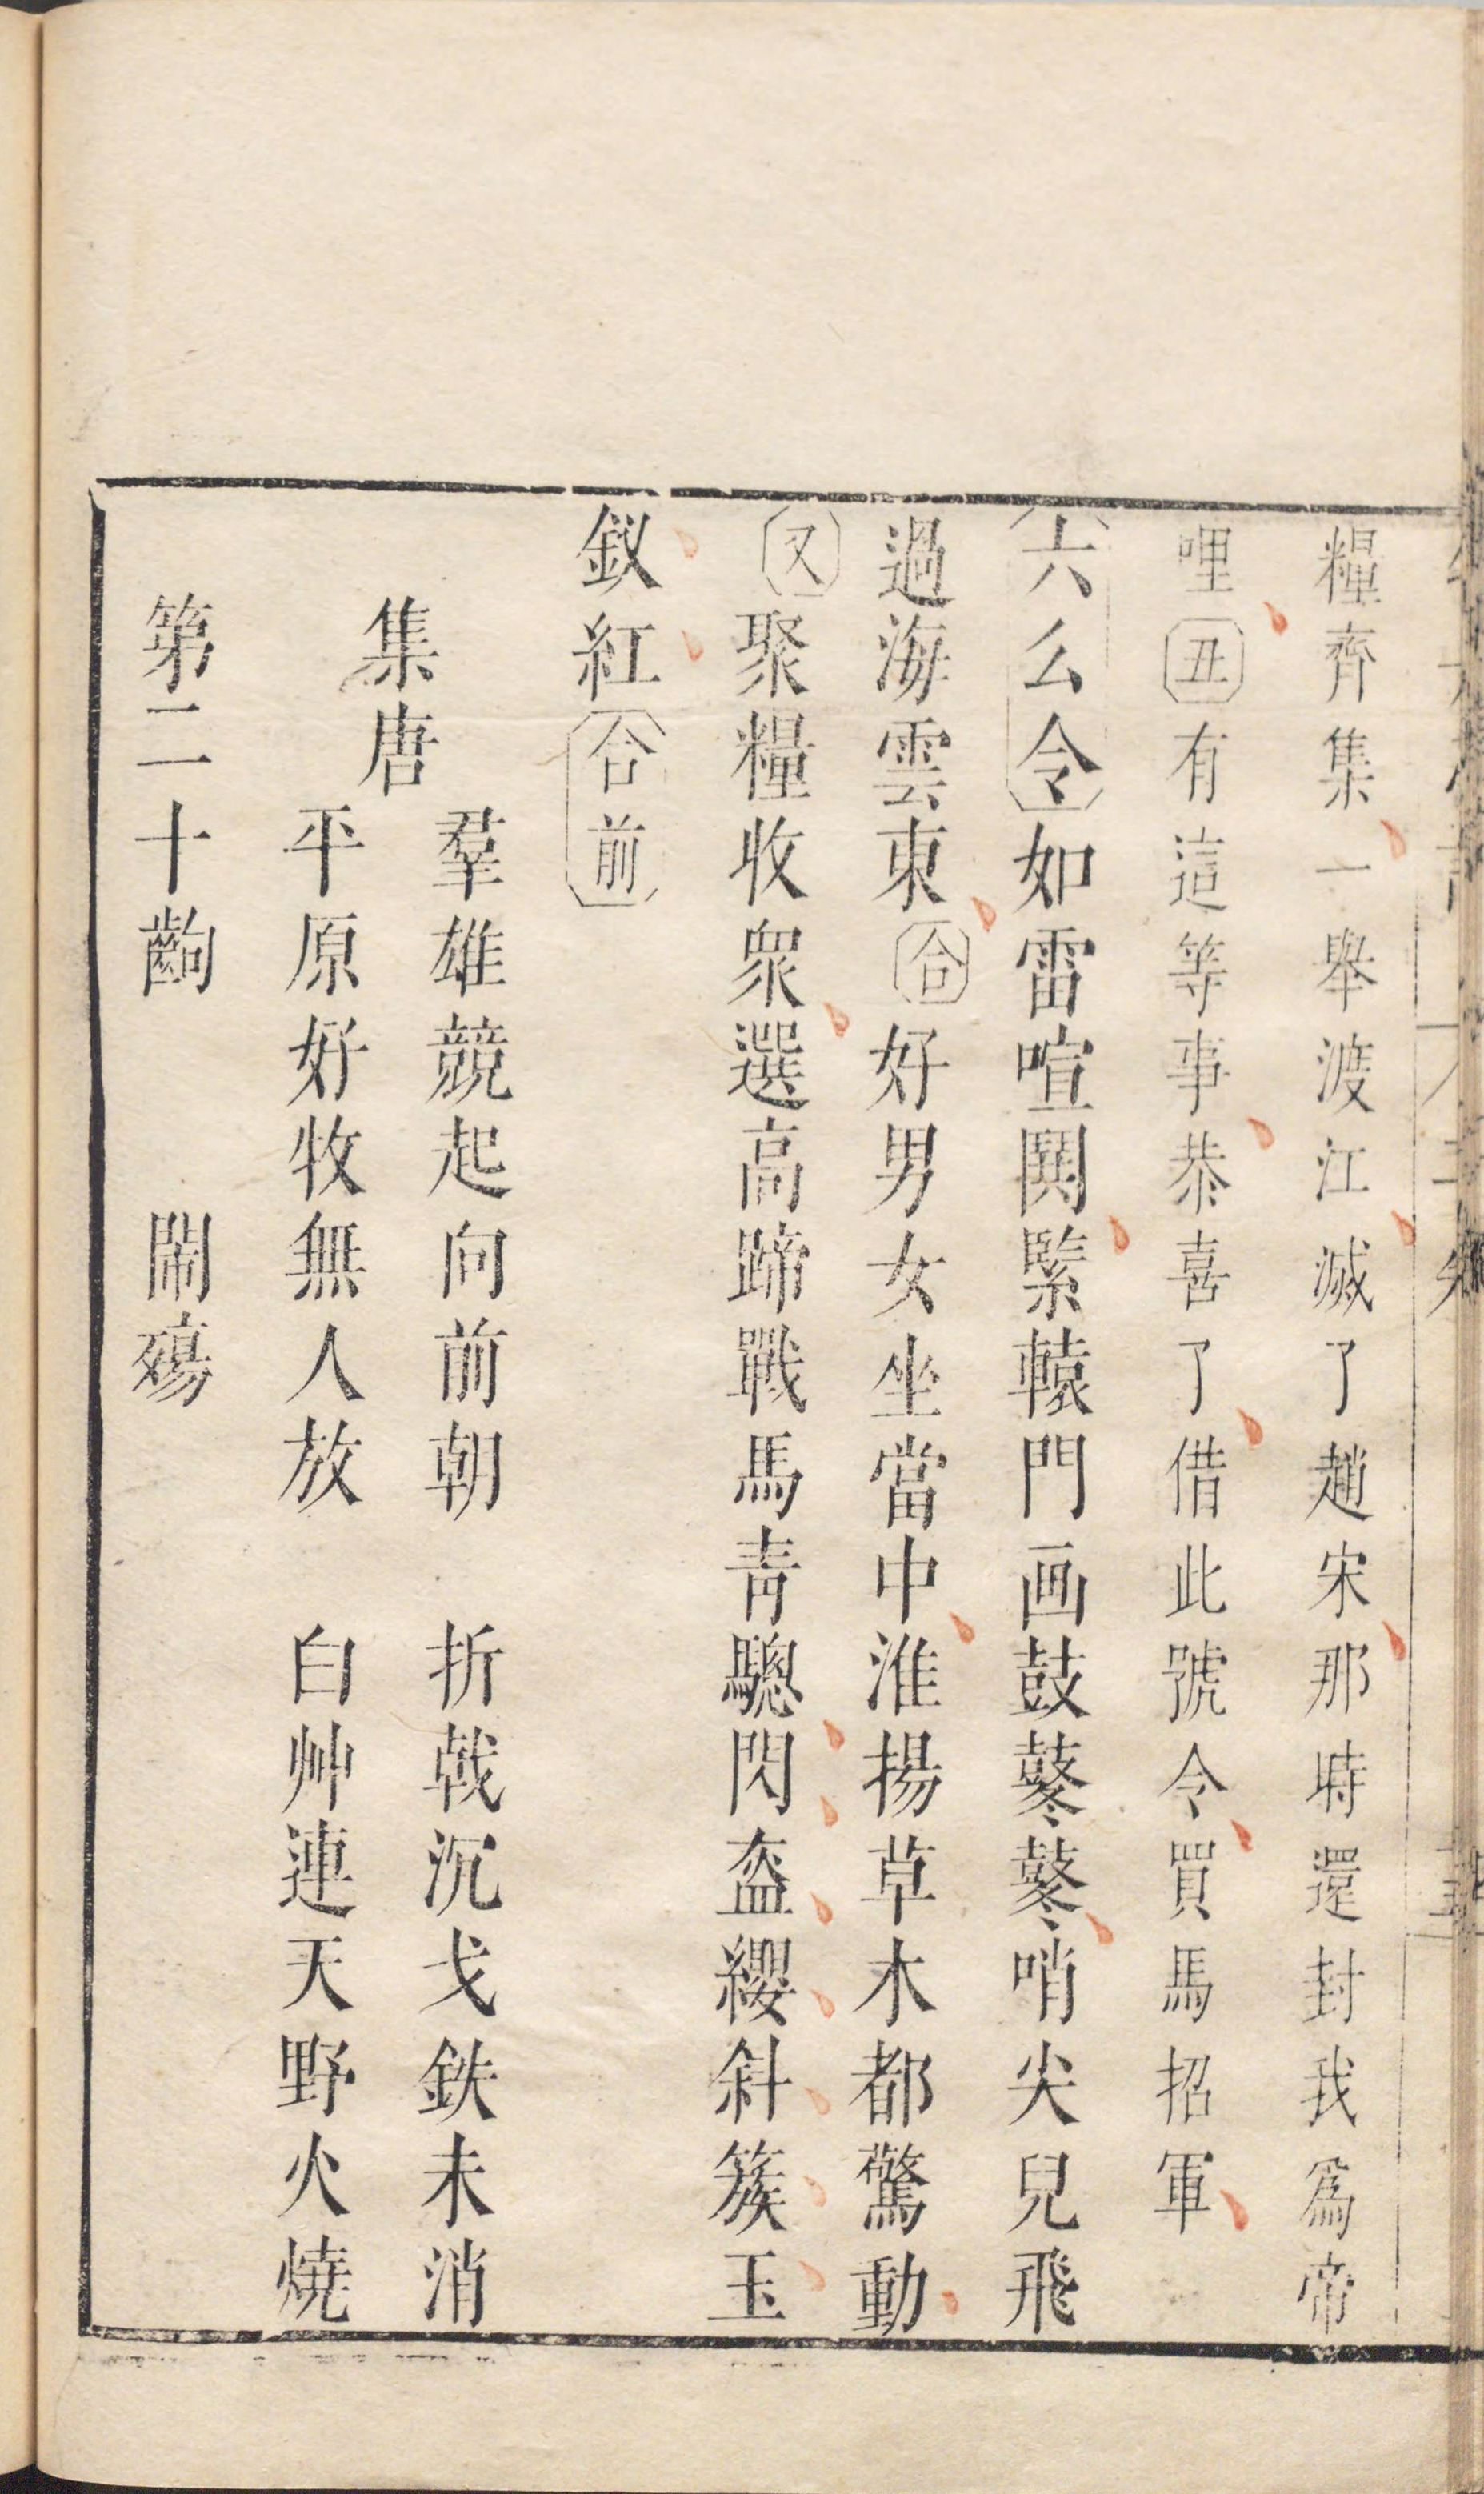 糧齊集一舉渡江滅了趙宋那時還封我爲帝
哩丑有這等事恭喜了借此號令買馬招軍
六么令如雷喧鬨緊轅門画鼓鼕鼕哨尖兒飛
過海雲東合好男女坐當中淮揚草木都驚動
又聚糧收衆選高蹄戰馬青驄閃盔纓斜簇玉
釵紅合前
集唐
羣雄競起向前朝　折戟沉戈鉄未消
平原好牧無人放　白艸連天野火燒
第二十齣　鬧殤